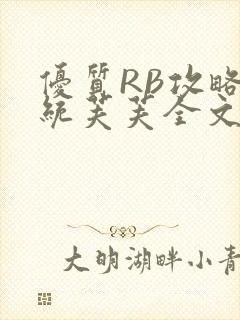 優質RB攻略
統芙芙全文
大明湖畔小青